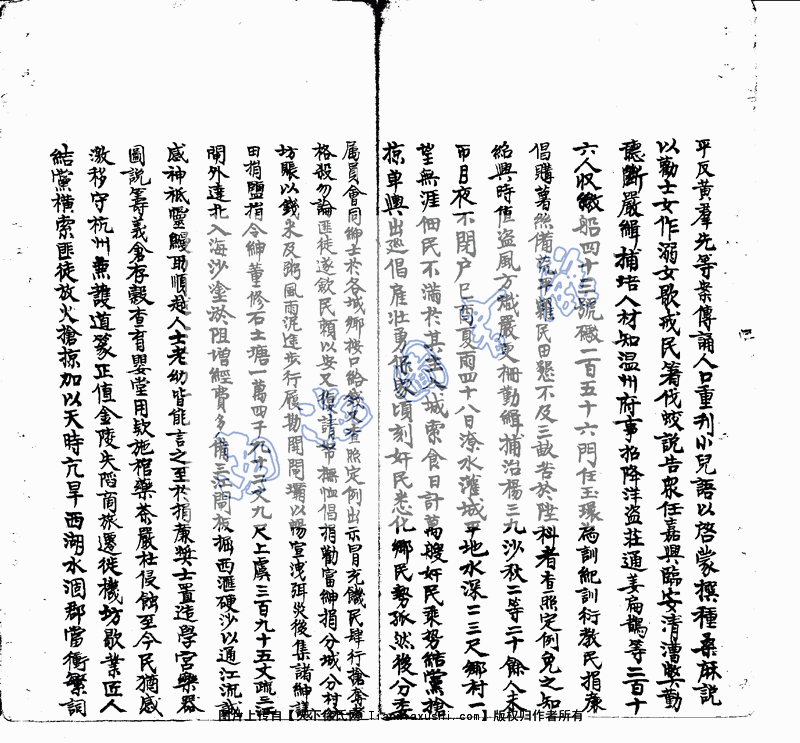 平反黃羣先等案傳誦人口重刋小兒語以啓蒙撰種桑蔴說
以勸士女作溺女歌戒民箸伐蛟說告衆任嘉興臨安清漕弊勤
聽斷嚴緝捕培人材知温州府事招降洋盜莊通姜扁鵲等二百十
六人收繳船四十三號礮二百五十六門任玉環為訓紀訓衍教民捐廉
倡購薯絲備荒平糶民田懇不及三畝者於陞科者查照定例免之知
紹興時值盜風方熾嚴更柵勤緝捕治楊三九沙秋二等二十餘人未
帀月夜不閉户己酉夏雨四十八日潦水灌城平地水深二三尺鄉村一
望無涯佃民不滿於其主入城索食日計萬艘奸民乘勢結黨搶
掠單輿出廵倡雇壯勇保家頃刻奸民悉化鄉民勢孤然後分委
属員會同紳士於各城鄉按口給錢又查照定例出示冒充饑民肆行搶奪者
格殺勿論匪徒遂歛民頼以安又復請帑撫恤倡捐勸富紳捐分城分村分
坊賑以錢米及粥風雨泥途步行履勘閘壩以暢宣洩弭災後集諸紳議
田捐鹽捐令紳董修石土塘一萬四千九十二丈九尺上虞三百九十五丈疏三江
閘外達丼入海沙塗淤阻增經費多備三江閘板掘西滙硬沙以通江流誠
感神祗靈鰻助順越人士老幼皆能言之至於捐廉獎士置造學宮樂器
圖説籌義倉存穀查育嬰堂用欵施棺藥茶嚴杜侵蝕至今民猶感
激移守杭州兼護道篆正值金陵失陷商旅遷徙機坊歇業匠人
結黨横索匪徒放火搶掠加以天時亢旱西湖水涸郡當衝繁詞